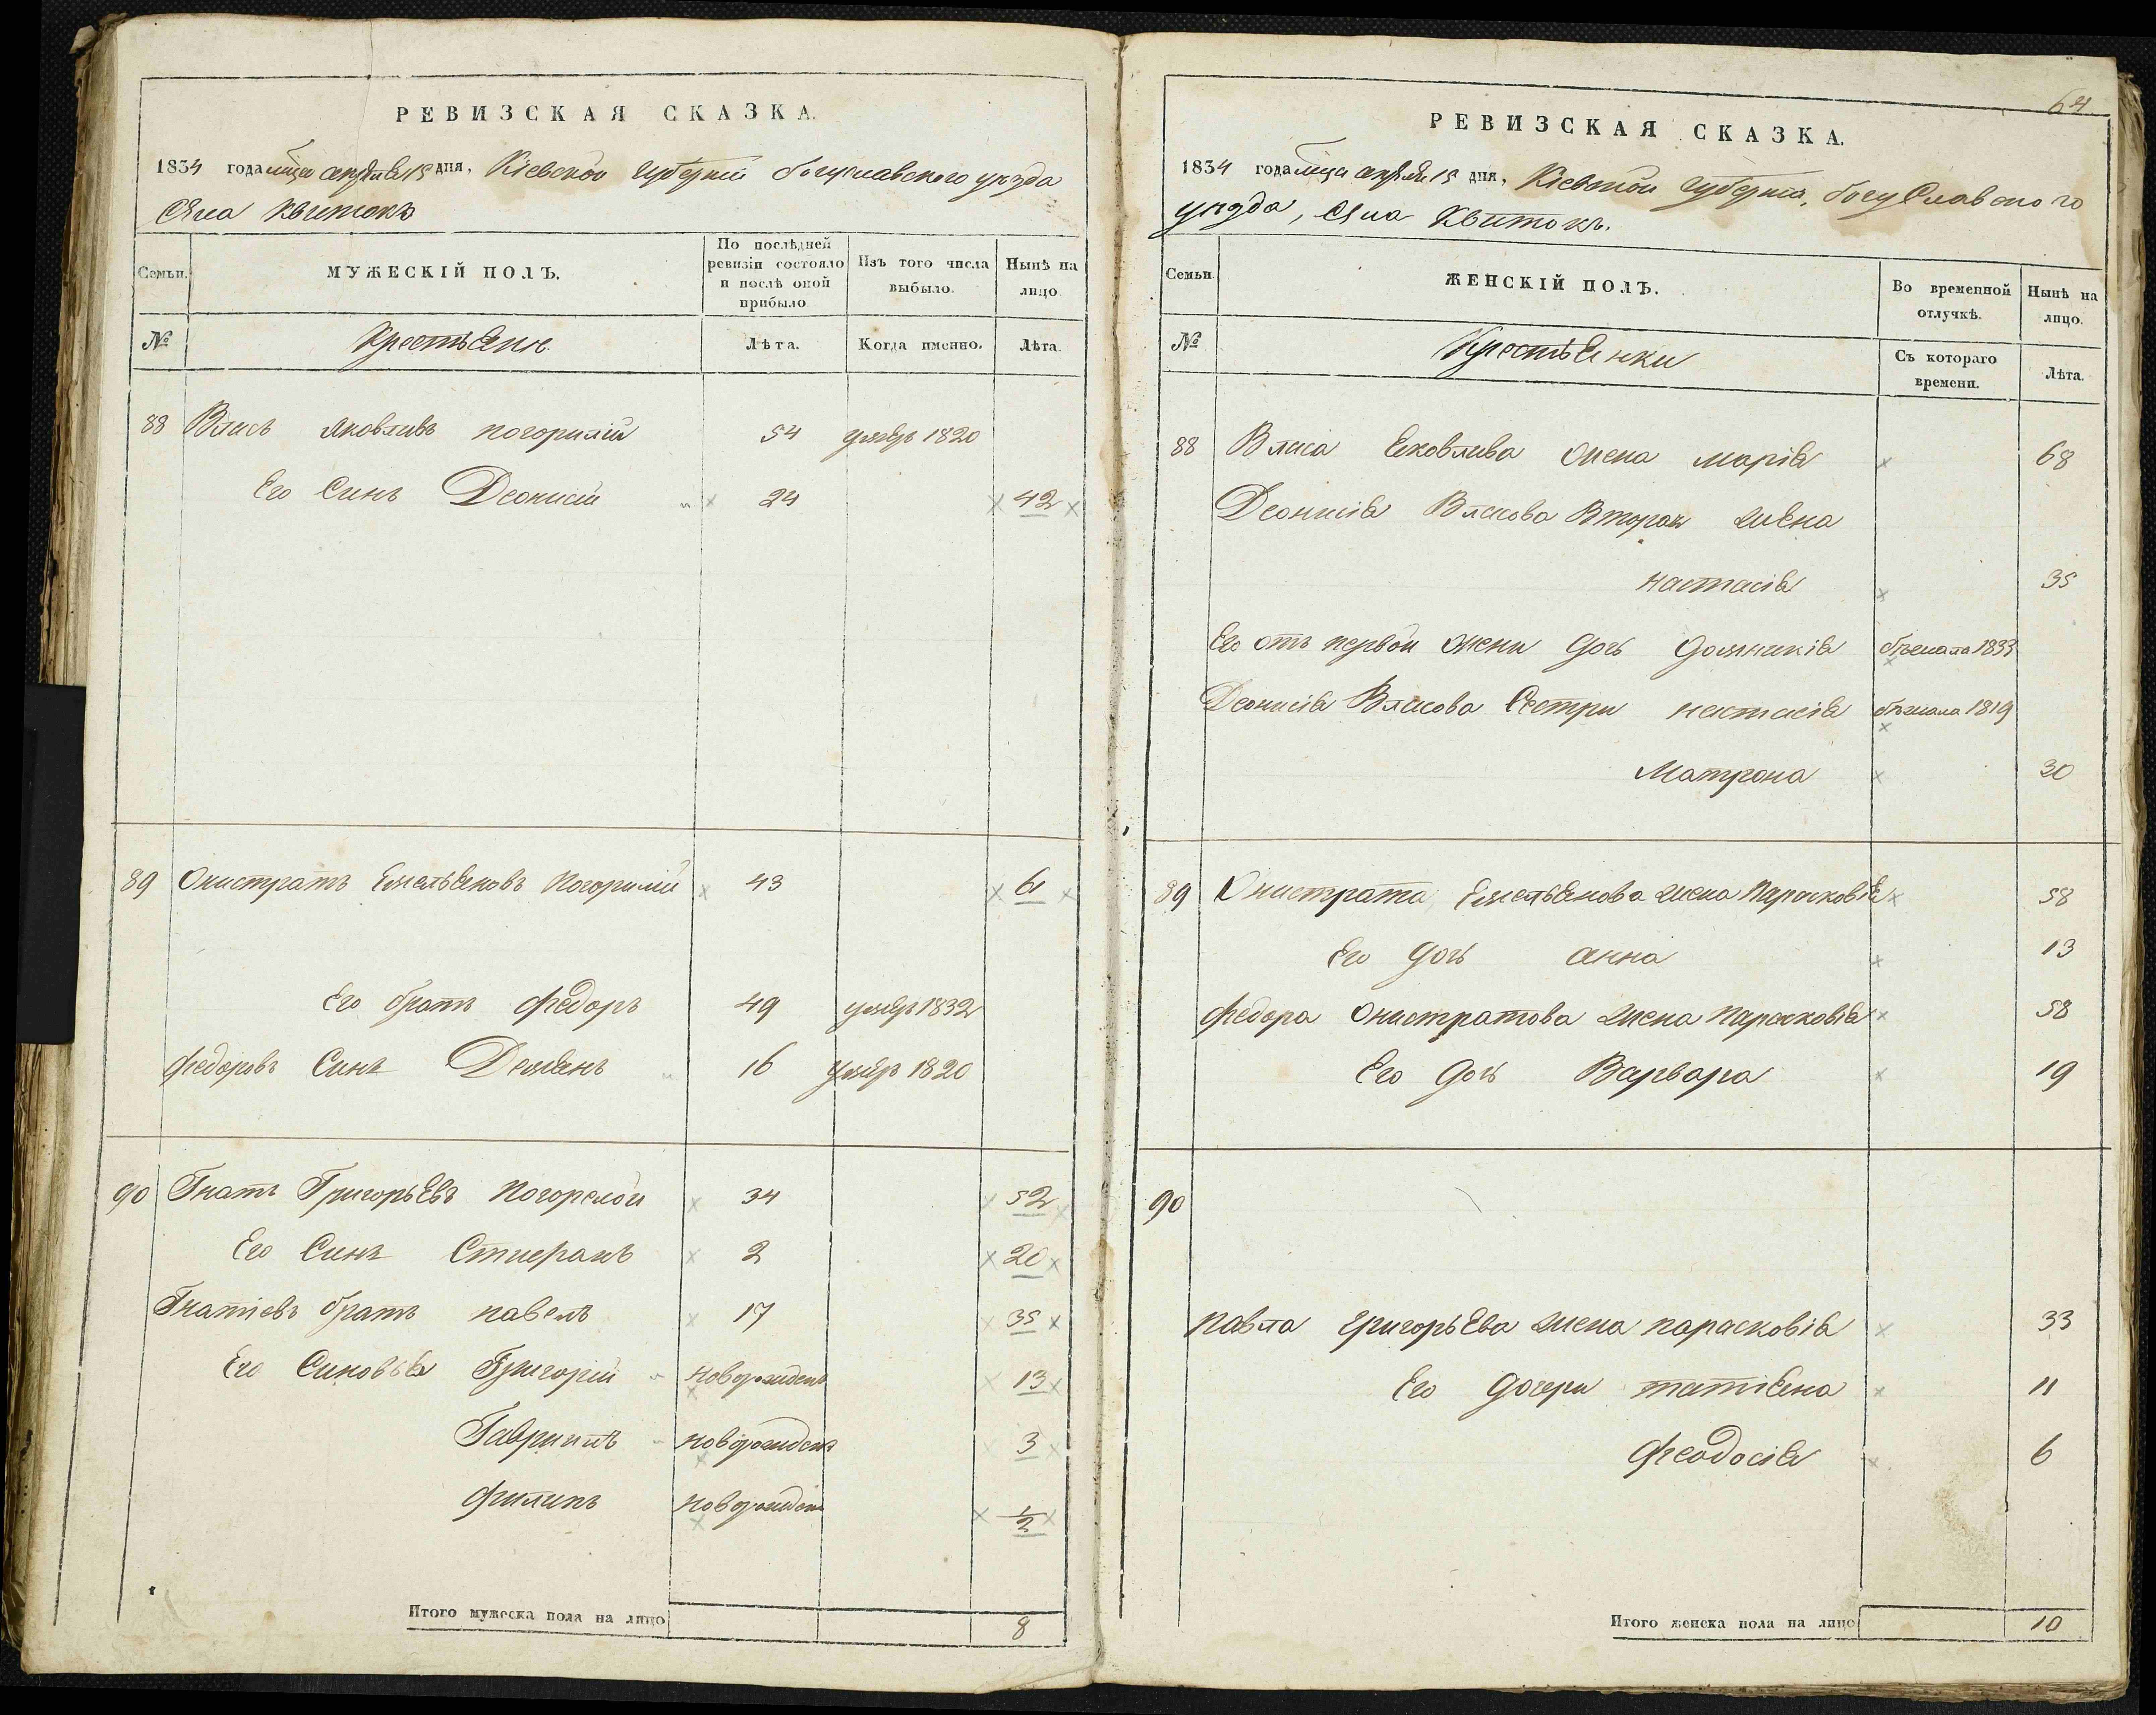 РЕВИЗСКАЯ СКАЗКА.
1834 года мца апреля 15 дня, Кіевской губерніи богуславского уезда
села Квитокъ
Семьи.
МУЖЕСКІЙ ПОЛЪ.
По послѣдней ревизіи состояло и послѣ оной прибыло
Изъ того числа выбыло.
Нынѣ на лицо
№
Крестьяне
Лѣта.
Когда именно.
Лѣта.
88 Власъ яковливъ погорилій 54 умеръ 1820
Его Синъ Деонисій 24 42
89 Онистратъ Емельяновъ Погорилій 43 61
Его братъ федоръ 49 умеръ 1832
федоровъ Синъ Демянъ 16 умеръ 1820
90 Гнатъ Григорьевъ Погорелой 34 52
Его Синъ 2 20
Гнатіевъ братъ павелъ 17 35
Его Синовья Григорій новорожденъ 13
Гавриилъ новорожденъ 3
филипъ новорожденъ 1/2
Итого мужеска пола на лицо 8
64
РЕВИЗСКАЯ СКАЗКА.
1834 года мца апреля 15 дня, Кіевской губерніи, богуславского
уезда, села Квитокъ.
Семьи
ЖЕНСКІЙ ПОЛЪ.
Во временной отлучкѣ.
Нынѣ на лицо.
№
Крестьянки
Съ котораго времени.
Лѣта.
88 Власа яковлива жена марія 68
Деонисія Власова Вторая жена
настасія 35
Его отъ первой жени дочь домникія бѣжала 1833
Деонисія Власова Сестри настасія бѣжала 1819
Матрона 30
89 Онистрата Емельянова жена Парасковія 58
Его дочь анна 13
федора Онистратова жена Парасковія 58
Его дочь Варвара 19
90
павла григорьева жена парасковія 33
Его дочери татіяна 11
феодосія 6
Итого женска пола на лицо 10